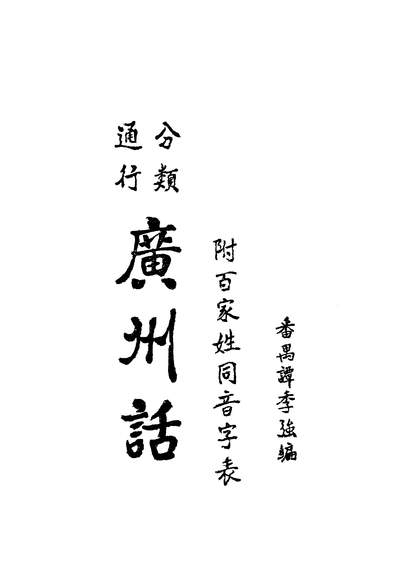 番禺譚季強編
附百家姓同音字表
分類
通行
廣州話